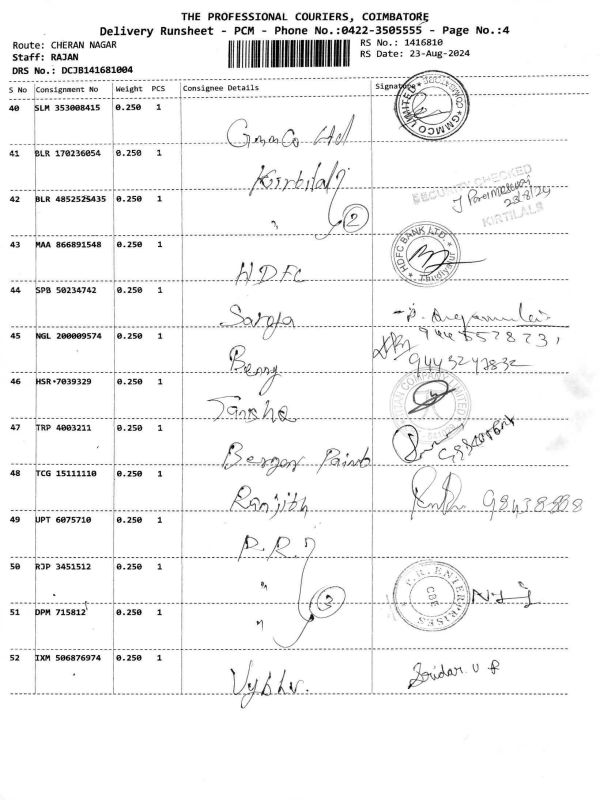 THE PROFESSIONAL COURIERS, COIMBATORE
Delivery Runsheet - PCM - Phone No.:0422-3505555 - Page No.:4
Route: CHERAN NAGAR
RS No.: 1416810
Staff: RAJAN
RS Date: 23-Aug-2024
DRS No.: DCJB141681004
S No Consignment No Weight PCS Consignee Details Signature
40 SLM 353008415 0.250 1
GMMCO LIMITED
Gmmco Ltd
41 BLR 170236054 0.250 1
Kirtilals
SECURITY CHECKED
23/8/24
KIRTILALS
42 BLR 4852525435 0.250 1
" 2
43 MAA 866891548 0.250 1
HDFC BANK LTD.
HDFC
44 SPB 50234742 0.250 1
45 NGL 200009574 0.250 1
9443247832
46 HSR 7039329 0.250 1
47 TRP 4003211 0.250 1
Berger Paint
48 TCG 15111110 0.250 1
Ranjith
49 UPT 6075710 0.250 1
P.R.
50 RJP 3451512 0.250 1
"
P.R. ENTERPRISES
CBE
3
51 DPM 715812 0.250 1
"
52 IXM 506876974 0.250 1
Sridar. U P